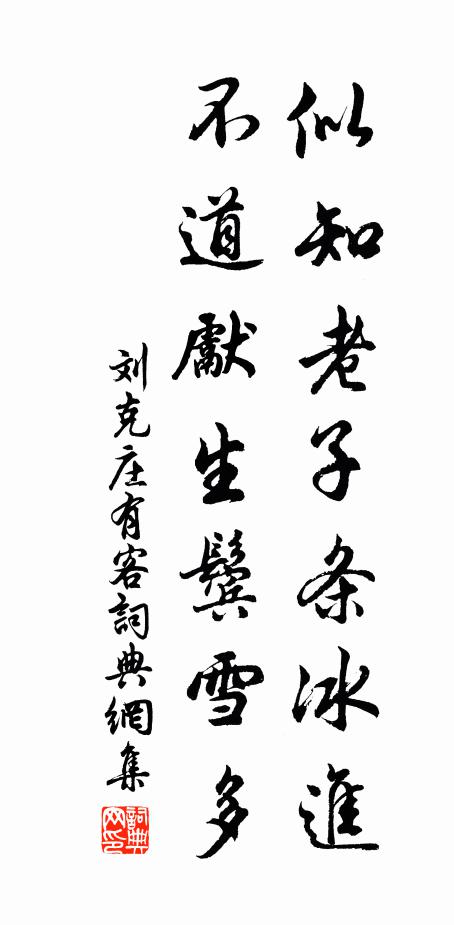 似知老子条冰進
不道獻生鬓雪多
刘克庄有客詞典網集
詞典網印